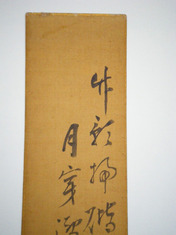 竹影掃階
月穿潭